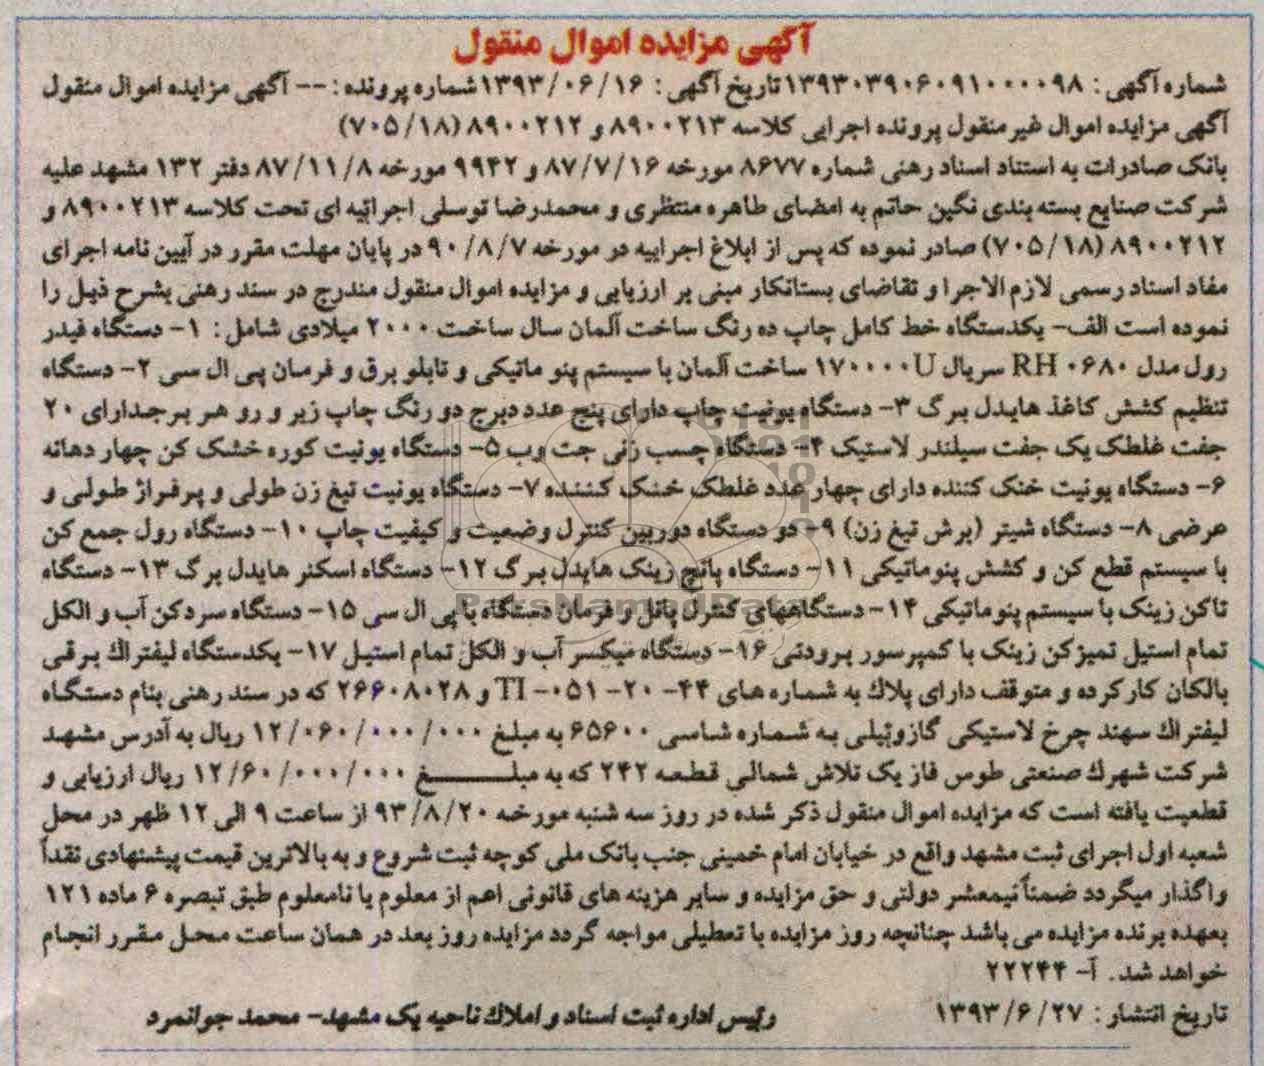 آگهی مزایده اموال منقول
شماره آگهی: ۱۳۹۳۰۳۹۰۶۰۹۱۰۰۰۰۹۸ تاریخ آگهی: ۱۳۹۳/۰۶/۱۶ شماره پرونده: -- آگهی مزایده اموال منقول
آگهی مزایده اموال غیر منقول پرونده اجرایی کلاسه ۸۹۰۰۲۱۳ و ۸۹۰۰۲۱۲ (۷۰۵/۱۸)
بانک صادرات به استناد اسناد رهنی شماره ۸۶۷۷ مورخه ۸۷/۷/۱۶ و ۹۹۴۲ مورخه ۸۷/۱۱/۸ دفتر ۱۳۲ مشهد علیه
شرکت صنایع بسته بندی نگین حاتم به امضای طاهره منتظری و محمدرضا توسلی اجرائیه ای تحت کلاسه ۸۹۰۰۲۱۳ و
۸۹۰۰۲۱۲ (۷۰۵/۱۸) صادر نموده که پس از ابلاغ اجراییه در مورخه ۹۰/۸/۷ در پایان مهلت مقرر در آیین نامه اجرای
مفاد اسناد رسمی لازم الاجرا و تقاضای بستانکار مبنی بر ارزیابی و مزایده اموال منقول مندرج در سند رهنی بشرح ذیل را
نموده است الف- یکدستگاه خط کامل چاپ ده رنگ ساخت آلمان سال ساخت ۲۰۰۰ میلادی شامل: ۱- دستگاه فیدر
رول مدل RH ۰۶۸۰ سریال ۱۷۰۰۰۰U ساخت آلمان با سیستم پنو ماتیکی و تابلو برق و فرمان پی ال سی ۲- دستگاه
تنظیم کشش کاغذ هایدل برگ ۳- دستگاه یونیت چاپ دارای پنج عدد دبرج دو رنگ چاپ زیر و رو هر برجدارای ۲۰
جفت غلطک یک جفت سیلندر لاستیک ۴- دستگاه چسب زنی جت وب ۵- دستگاه یونیت کوره خشک کن چهار دهانه
۶- دستگاه یونیت خنک کننده دارای چهار عدد غلطک خنک کننده ۷- دستگاه یونیت تیغ زن طولی و پرفراژ طولی و
عرضی ۸- دستگاه شیتر (برش تیغ زن) ۹- دو دستگاه دوربین کنترل وضعیت و کیفیت چاپ ۱۰- دستگاه رول جمع کن
با سیستم قطع کن و کشش پنوماتیکی ۱۱- دستگاه پانچ زینک هایدل برگ ۱۲- دستگاه اسکنر هایدل برگ ۱۳- دستگاه
تاکن زینک با سیستم پنوماتیکی ۱۴- دستگاههای کنترل پانل و فرمان دستگاه با پی ال سی ۱۵- دستگاه سردکن آب و الکل
تمام استیل تمیزکن زینک با کمپرسور برودتی ۱۶- دستگاه میکسر آب و الکل تمام استیل ۱۷- یکدستگاه لیفتراک برقی
بالکان کارکرده و متوقف دارای پلاک به شماره های ۴۴- ۲۰- ۰۵۱- TI و ۲۶۶۰۸۰۲۸ که در سند رهنی بنام دستگاه
لیفتراک سهند چرخ لاستیکی گازوئیلی به شماره شاسی ۶۵۶۰۰ به مبلغ ۱۲/۰۶۰/۰۰۰/۰۰۰ ریال به آدرس مشهد
شرکت شهرک صنعتی طوس فاز یک تلاش شمالی قطعه ۲۴۲ که به مبلغ ۱۲/۶۰/۰۰۰/۰۰۰ ریال ارزیابی و
قطعیت یافته است که مزایده اموال منقول ذکر شده در روز سه شنبه مورخه ۹۳/۸/۲۰ از ساعت ۹ الی ۱۲ ظهر در محل
شعبه اول اجرای ثبت مشهد واقع در خیابان امام خمینی جنب بانک ملی کوچه ثبت شروع و به بالاترین قیمت پیشنهادی نقداً
واگذار میگردد ضمناً نیمعشر دولتی و حق مزایده و سایر هزینه های قانونی اعم از معلوم یا نامعلوم طبق تبصره ۶ ماده ۱۲۱
بعهده برنده مزایده می باشد چنانچه روز مزایده با تعطیلی مواجه گردد مزایده روز بعد در همان ساعت محل مقرر انجام
خواهد شد. آ- ۲۲۲۴۴
تاریخ انتشار: ۱۳۹۳/۶/۲۷
رئیس اداره ثبت اسناد و املاک ناحیه یک مشهد- محمد جوانمرد
ParsNamadData